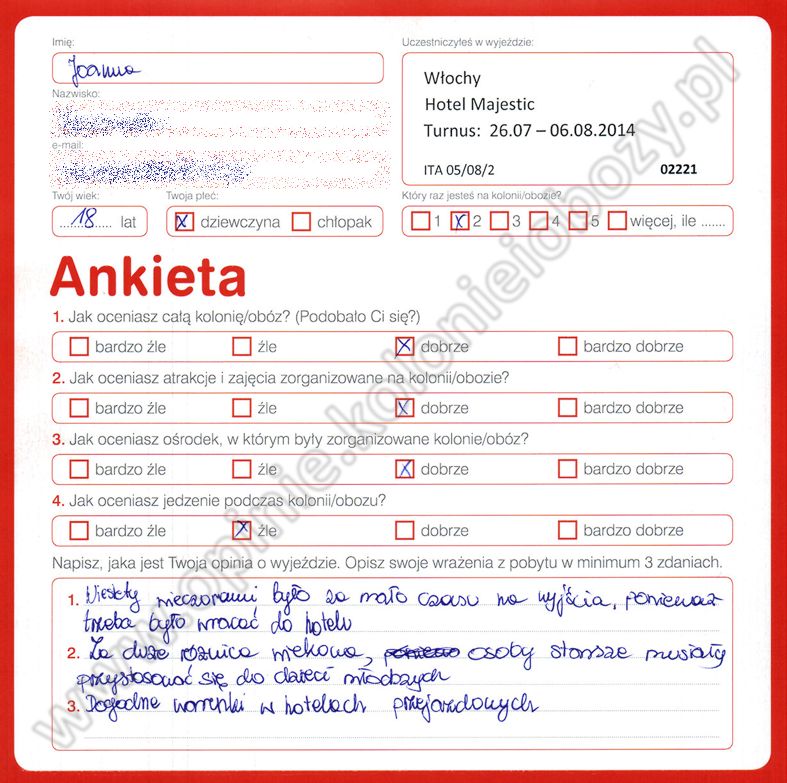 Imię:
Joanna
Nazwisko:
e-mail:
Twój wiek:
18 lat
Twoja płeć:
dziewczyna chłopak
Uczestniczyłeś w wyjeździe:
Włochy
Hotel Majestic
Turnus: 26.07 – 06.08.2014
ITA 05/08/2 02221
Który raz jesteś na kolonii/obozie?
1 2 3 4 5 więcej, ile .......
Ankieta
1. Jak oceniasz całą kolonię/obóz? (Podobało Ci się?)
bardzo źle źle dobrze bardzo dobrze
2. Jak oceniasz atrakcje i zajęcia zorganizowane na kolonii/obozie?
bardzo źle źle dobrze bardzo dobrze
3. Jak oceniasz ośrodek, w którym były zorganizowane kolonie/obóz?
bardzo źle źle dobrze bardzo dobrze
4. Jak oceniasz jedzenie podczas kolonii/obozu?
bardzo źle źle dobrze bardzo dobrze
Napisz, jaka jest Twoja opinia o wyjeździe. Opisz swoje wrażenia z pobytu w minimum 3 zdaniach.
1. Niestety wieczorami było za mało czasu na wyjścia, ponieważ
trzeba było wracać do hotelu
2. Za duże różnica wiekowa, osoby starsze musiały
przystosować się do dzieci młodszych
3. Dogodne warunki w hotelach przejazdowych
www.opinie.kolonieiobozy.pl